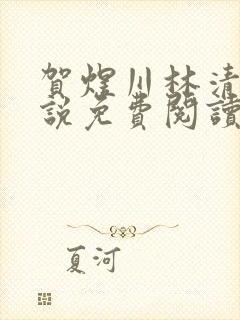 賀煜川林清
說免費閱讀
夏河